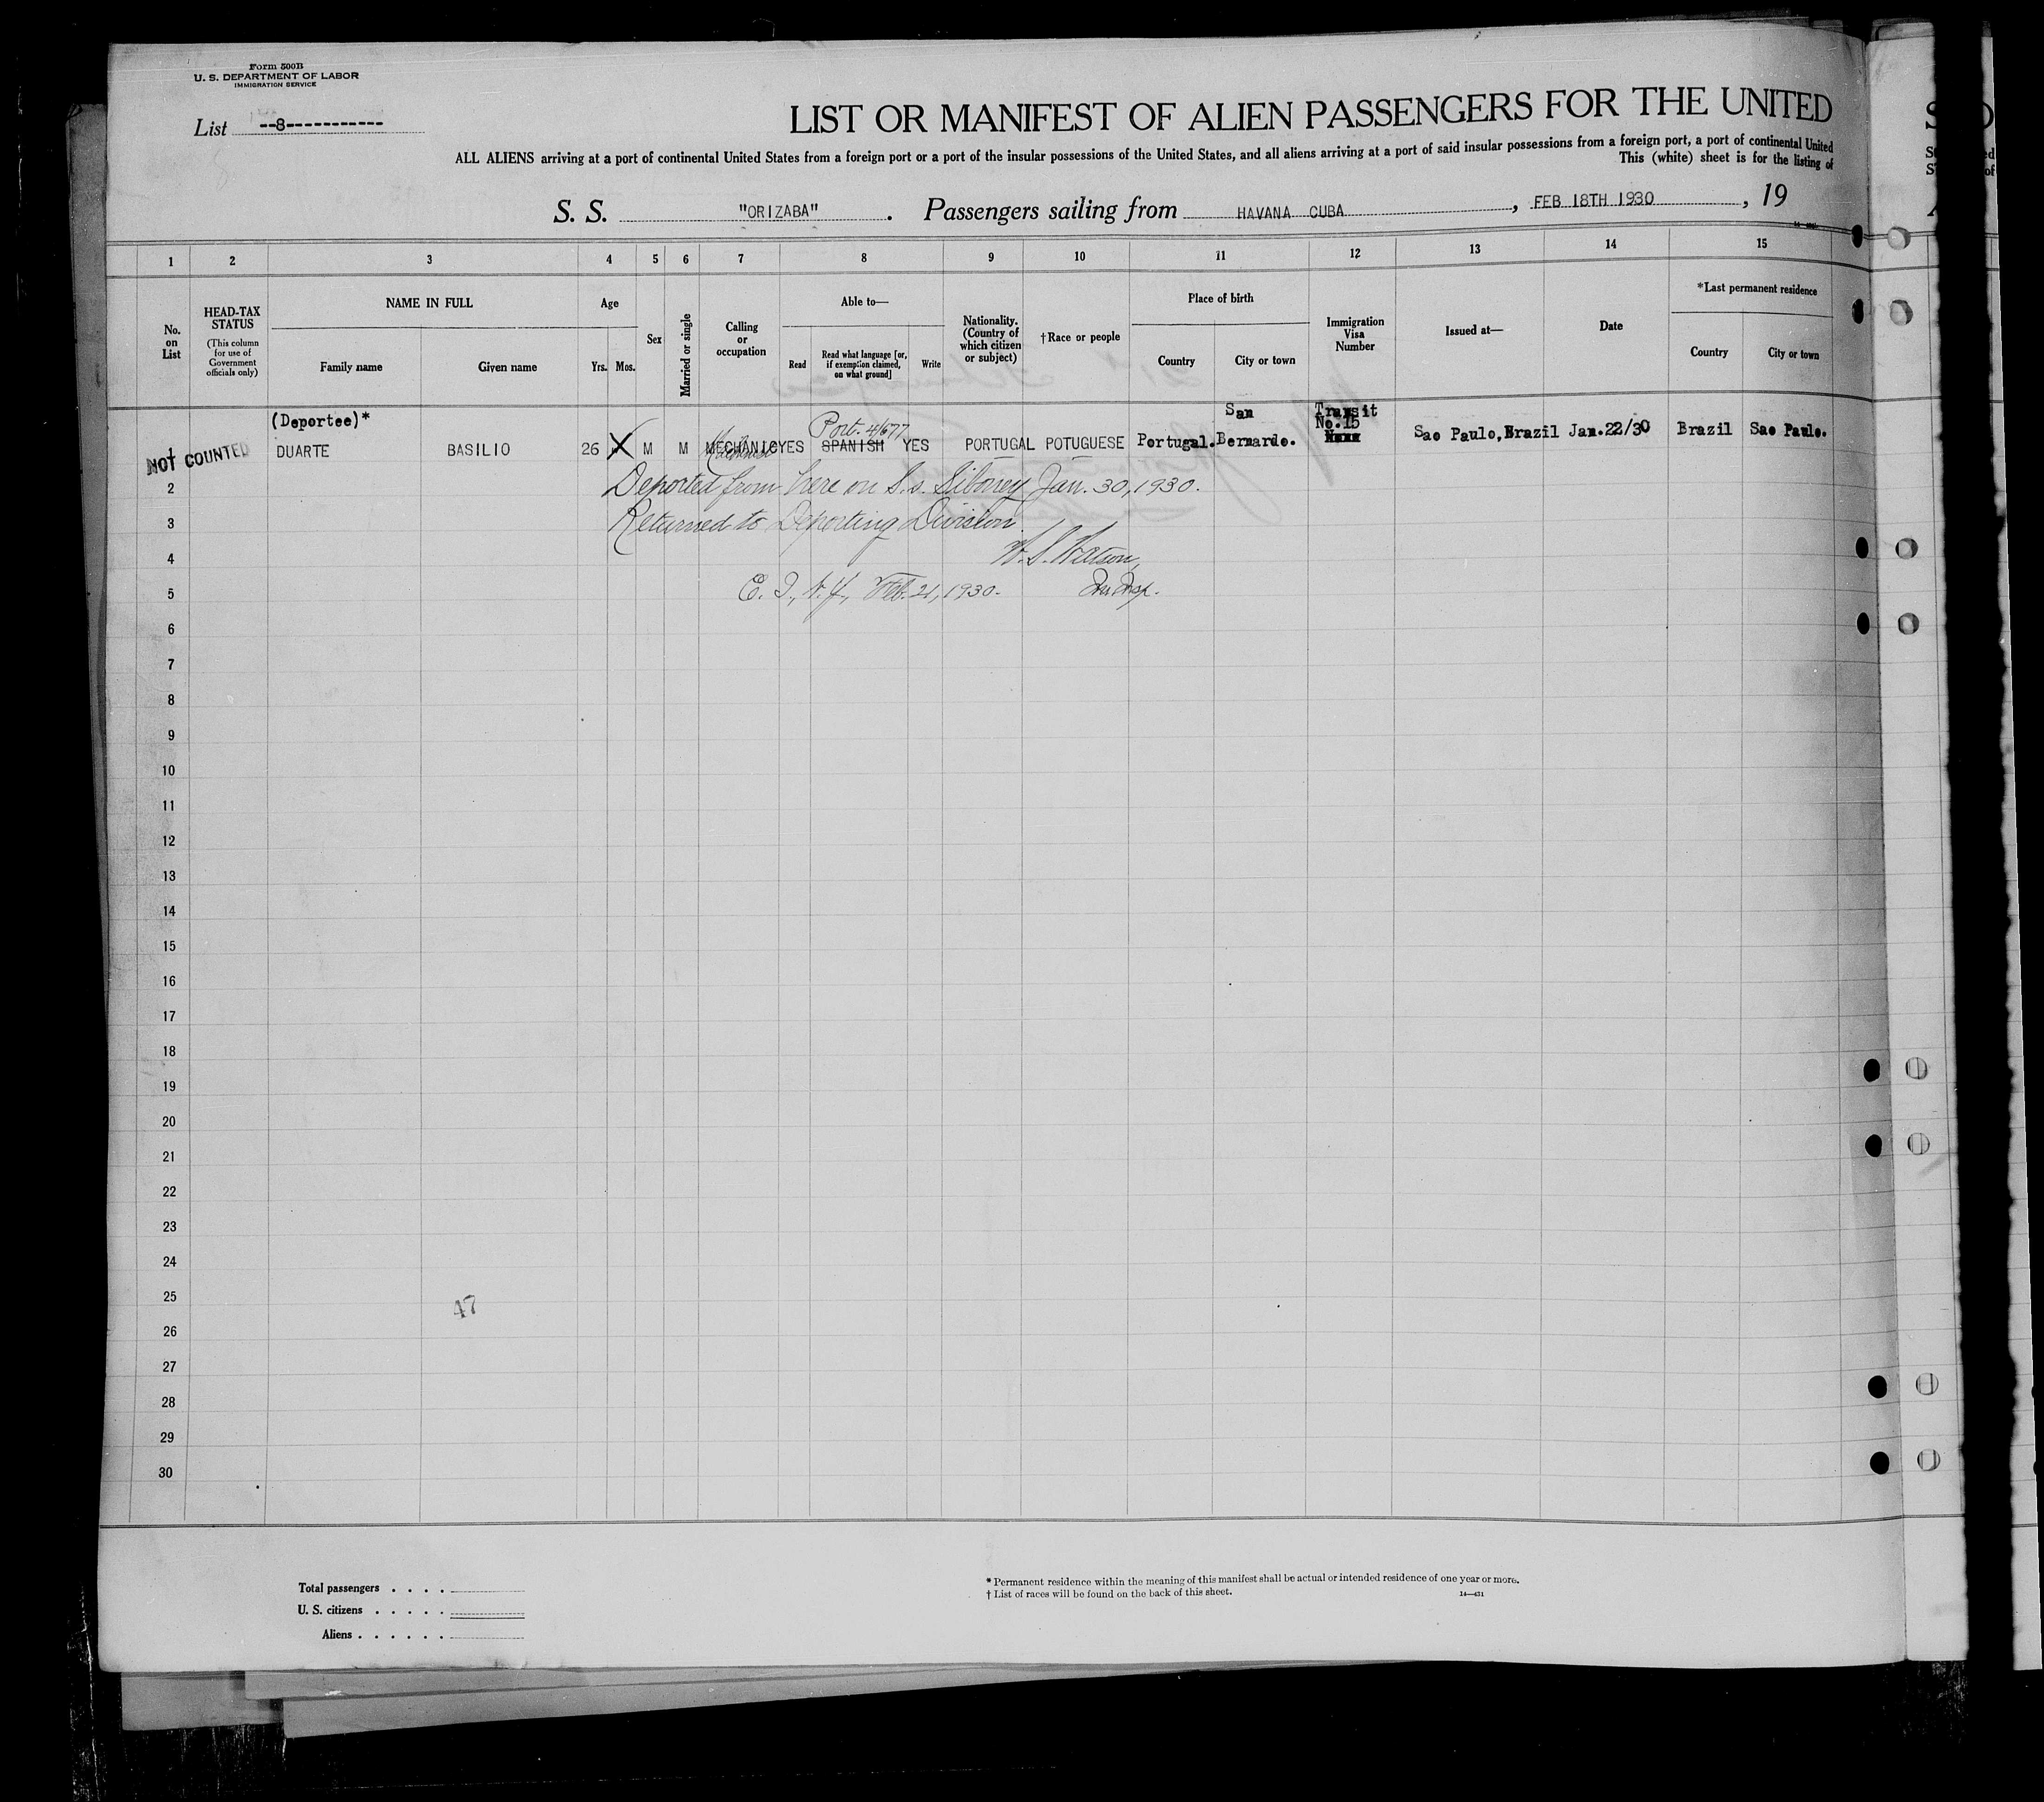 Form 500B
U. S. DEPARTMENT OF LABOR
IMMIGRATION SERVICE
List --8-----------
LIST OR MANIFEST OF ALIEN PASSENGERS FOR THE UNITED
ALL ALIENS arriving at a port of continental United States from a foreign port or a port of the insular possessions of the United States, and all aliens arriving at a port of said insular possessions from a foreign port, a port of continental United
This (white) sheet is for the listing of
S. S. "ORIZABA" . Passengers sailing from HAVANA CUBA , FEB 18TH 1930 , 19
1 2 3 4 5 6 7 8 9 10 11 12 13 14 15
No. on List
HEAD-TAX STATUS
(This column for use of Government officials only)
NAME IN FULL
Family name Given name
Age
Yrs. Mos.
Sex
Married or single
Calling or occupation
Able to—
Read
Read what language [or, if exemption claimed, on what ground]
Write
Nationality. (Country of which citizen or subject)
†Race or people
Place of birth
Country City or town
Immigration Visa Number
Issued at—
Date
*Last permanent residence
Country City or town
(Deportee)*
Port. 4/677
San
Transit
No.15
1 NOT COUNTED DUARTE BASILIO 26 X M M MECHANIC YES SPANISH YES PORTUGAL POTUGUESE Portugal. Bernardo. Sao Paulo,Brazil Jan.22/30 Brazil Sao Paulo.
2 Deported from here on S.S. Siboney Jan. 30, 1930.
3 Returned to Deporting Division
4 W. S. Watson,
5 E. I., N.Y., Feb. 21, 1930. Imm Insp.
6
7
8
9
10
11
12
13
14
15
16
17
18
19
20
21
22
23
24
25
47
26
27
28
29
30
Total passengers . . . .
U. S. citizens . . . . .
Aliens . . . . . .
* Permanent residence within the meaning of this manifest shall be actual or intended residence of one year or more.
† List of races will be found on the back of this sheet.
14—431